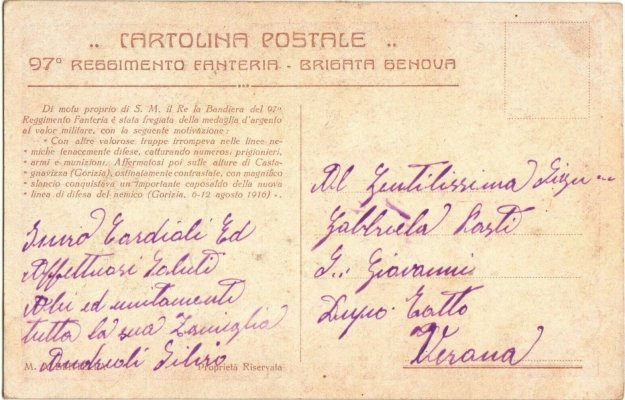 .. CARTOLINA POSTALE ..
97° REGGIMENTO FANTERIA - BRIGATA GENOVA
Di motu proprio di S. M. il Re la Bandiera del 97°
Reggimento Fanteria è stata fregiata della medaglia d'argento
al valor militare, con la seguente motivazione:
« Con altre valorose truppe irrompeva nelle linee ne-
« miche tenacemente difese, catturando numerosi prigionieri,
« armi e munizioni. Affermatosi poi sulle alture di Casta-
« gnavizza (Gorizia), ostinatamente contrastate, con magnifico
« slancio conquistava un importante caposaldo della nuova
« linea di difesa del nemico (Gorizia, 6-12 agosto 1916) ».
Cardioli Ed
Affettuosi Saluti
ed unitamenti
tutta la sua Famiglia
Andrioli Silvio
M.
Proprietà Riservata
Al Gentilissima Sign
Gabbriela
S.. Giovanni
Lupo Totto
Verona